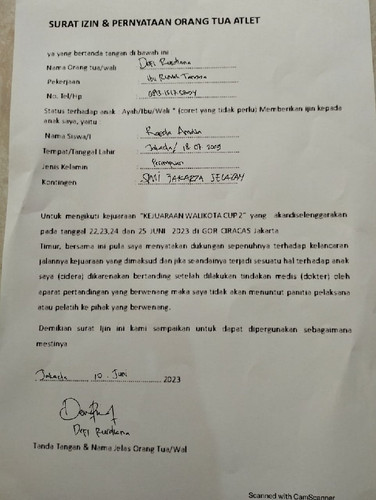 SURAT IZIN & PERNYATAAN ORANG TUA ATLET
ya yang bertanda tangan di bawah ini
Nama Orang tua/wali Depi Rusdiana
Pekerjaan Ibu Rumah Tangga
No. Tel/Hp
Status terhadap anak Ayah/Ibu/Wali * (coret yang tidak perlu) Memberikan ijin kepada
anak saya, yaitu
Nama Siswa/I
Tempat/Tanggal Lahir Jakarta/ 18 07 2009
Jenis Kelamin Perempuan
Kontingen JAKARTA SELATAN
Untuk mengikuti kejuaraan "KEJUARAAN WALIKOTA CUP 2" yang akandiselenggarakan
pada tanggal 22,23,24 dan 25 JUNI 2023 di GOR CIRACAS Jakarta
Timur, bersama ini pula saya menyatakan dukungan sepenuhnya terhadap kelancaran
jalannya kejuaraan yang dimaksud dan jika seandainya terjadi sesuatu hal terhadap anak
saya (cidera) dikarenakan bertanding setelah dilakukan tindakan medis (dokter) oleh
aparat pertandingan yang berwenang maka saya tidak akan menuntut panitia pelaksana
atau pelatih ke pihak yang berwenang.
Demikian surat Ijin ini kami sampaikan untuk dapat dipergunakan sebagaimana
mestinya
Jakarta 10 Juni 2023
Depi Rusdiana
Tanda Tangan & Nama Jelas Orang Tua/Wal
Scanned with CamScanner